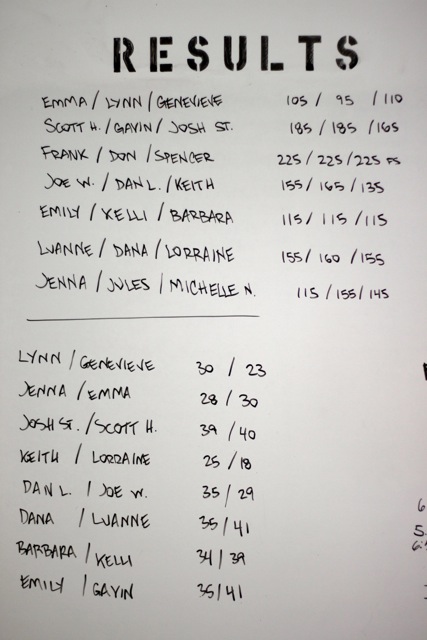 RESULTS
EMMA / LYNN / GENEVIEVE 105 / 95 / 110
SCOTT H. / GAVIN / JOSH ST. 185 / 185 / 165
FRANK / DON / SPENCER 225 / 225 / 225 FS
JOE W. / DAN L. / KEITH 155 / 165 / 135
EMILY / KELLI / BARBARA 115 / 115 / 115
LUANNE / DANA / LORRAINE 155 / 160 / 155
JENNA / JULES / MICHELLE N. 115 / 155 / 145
LYNN / GENEVIEVE 30 / 23
JENNA / EMMA 28 / 30
JOSH ST. / SCOTT H. 39 / 40
KEITH / LORRAINE 25 / 18
DAN L. / JOE W. 35 / 29
DANA / LUANNE 35 / 41
BARBARA / KELLI 34 / 39
EMILY / GAVIN 35 / 41